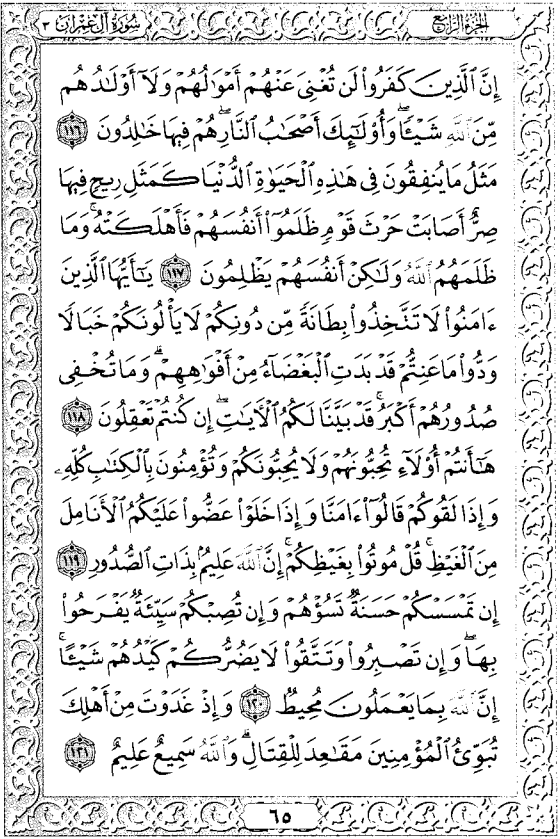 الجزء الرابع
سورة آل عمران ٣
إِنَّ ٱلَّذِينَ كَفَرُوا۟ لَن تُغْنِىَ عَنْهُمْ أَمْوَٰلُهُمْ وَلَآ أَوْلَـٰدُهُم
مِّنَ ٱللَّهِ شَيْـًٔا ۖ وَأُو۟لَـٰٓئِكَ أَصْحَـٰبُ ٱلنَّارِ ۚ هُمْ فِيهَا خَـٰلِدُونَ ١١٦
مَثَلُ مَا يُنفِقُونَ فِى هَـٰذِهِ ٱلْحَيَوٰةِ ٱلدُّنْيَا كَمَثَلِ رِيحٍ فِيهَا
صِرٌّ أَصَابَتْ حَرْثَ قَوْمٍ ظَلَمُوٓا۟ أَنفُسَهُمْ فَأَهْلَكَتْهُ ۚ وَمَا
ظَلَمَهُمُ ٱللَّهُ وَلَـٰكِنْ أَنفُسَهُمْ يَظْلِمُونَ ١١٧ يَـٰٓأَيُّهَا ٱلَّذِينَ
ءَامَنُوا۟ لَا تَتَّخِذُوا۟ بِطَانَةً مِّن دُونِكُمْ لَا يَأْلُونَكُمْ خَبَالًا
وَدُّوا۟ مَا عَنِتُّمْ قَدْ بَدَتِ ٱلْبَغْضَآءُ مِنْ أَفْوَٰهِهِمْ وَمَا تُخْفِى
صُدُورُهُمْ أَكْبَرُ ۚ قَدْ بَيَّنَّا لَكُمُ ٱلْـَٔايَـٰتِ ۖ إِن كُنتُمْ تَعْقِلُونَ ١١٨
هَـٰٓأَنتُمْ أُو۟لَآءِ تُحِبُّونَهُمْ وَلَا يُحِبُّونَكُمْ وَتُؤْمِنُونَ بِٱلْكِتَـٰبِ كُلِّهِۦ
وَإِذَا لَقُوكُمْ قَالُوٓا۟ ءَامَنَّا وَإِذَا خَلَوْا۟ عَضُّوا۟ عَلَيْكُمُ ٱلْأَنَامِلَ
مِنَ ٱلْغَيْظِ ۚ قُلْ مُوتُوا۟ بِغَيْظِكُمْ ۗ إِنَّ ٱللَّهَ عَلِيمٌۢ بِذَاتِ ٱلصُّدُورِ ١١٩
إِن تَمْسَسْكُمْ حَسَنَةٌ تَسُؤْهُمْ وَإِن تُصِبْكُمْ سَيِّئَةٌ يَفْرَحُوا۟
بِهَا ۖ وَإِن تَصْبِرُوا۟ وَتَتَّقُوا۟ لَا يَضُرُّكُمْ كَيْدُهُمْ شَيْـًٔا ۗ
إِنَّ ٱللَّهَ بِمَا يَعْمَلُونَ مُحِيطٌ ١٢٠ وَإِذْ غَدَوْتَ مِنْ أَهْلِكَ
تُبَوِّئُ ٱلْمُؤْمِنِينَ مَقَـٰعِدَ لِلْقِتَالِ ۗ وَٱللَّهُ سَمِيعٌ عَلِيمٌ ١٢١
٦٥